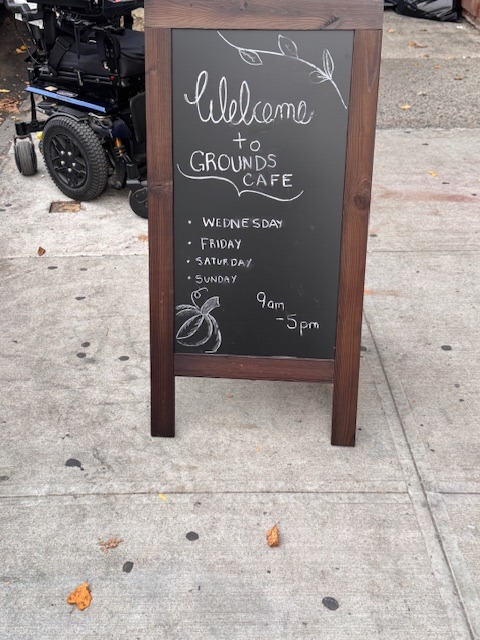 Welcome
to
GROUNDS
CAFE
• WEDNESDAY
• FRIDAY
• SATURDAY
• SUNDAY
9am
-5pm